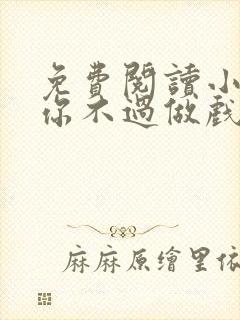 免費閱讀小
你不過做戲
麻麻原繪里依